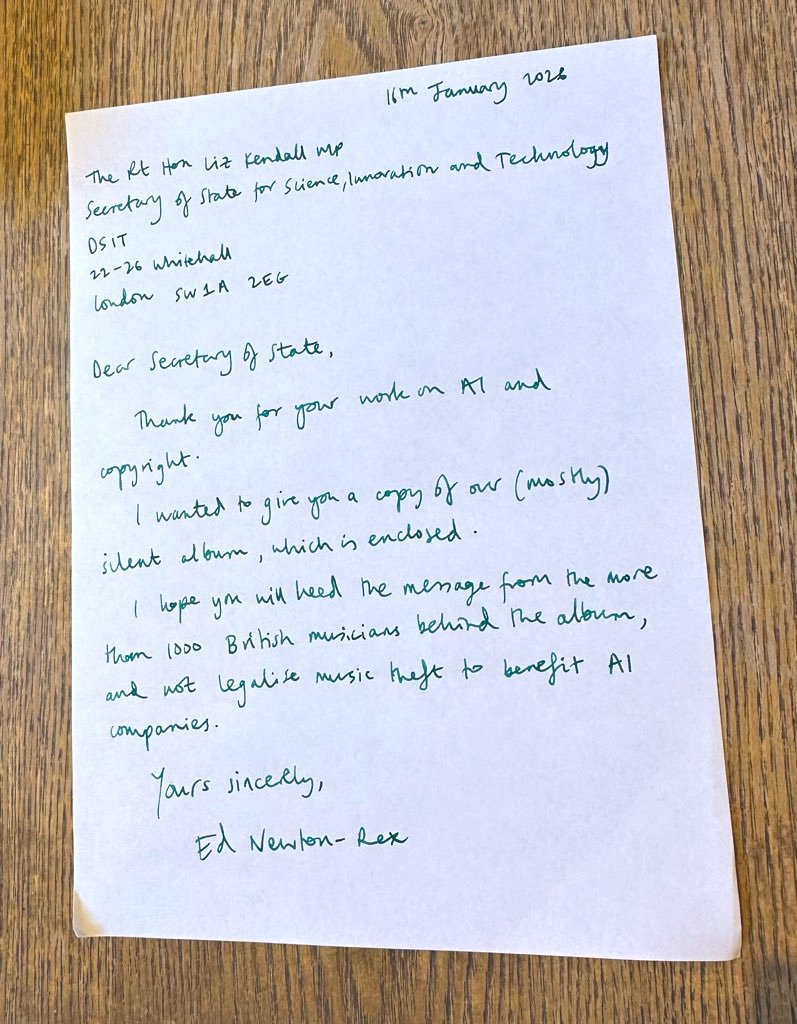 16th January 2026
The Rt Hon Liz Kendall MP
Secretary of State for Science, Innovation and Technology
DSIT
22-26 Whitehall
London SW1A 2EG
Dear Secretary of State,
Thank you for your work on AI and
copyright.
I wanted to give you a copy of our (mostly)
silent album, which is enclosed.
I hope you will heed the message from the more
than 1000 British musicians behind the album,
and not legalise music theft to benefit AI
companies.
Yours sincerely,
Ed Newton-Rex